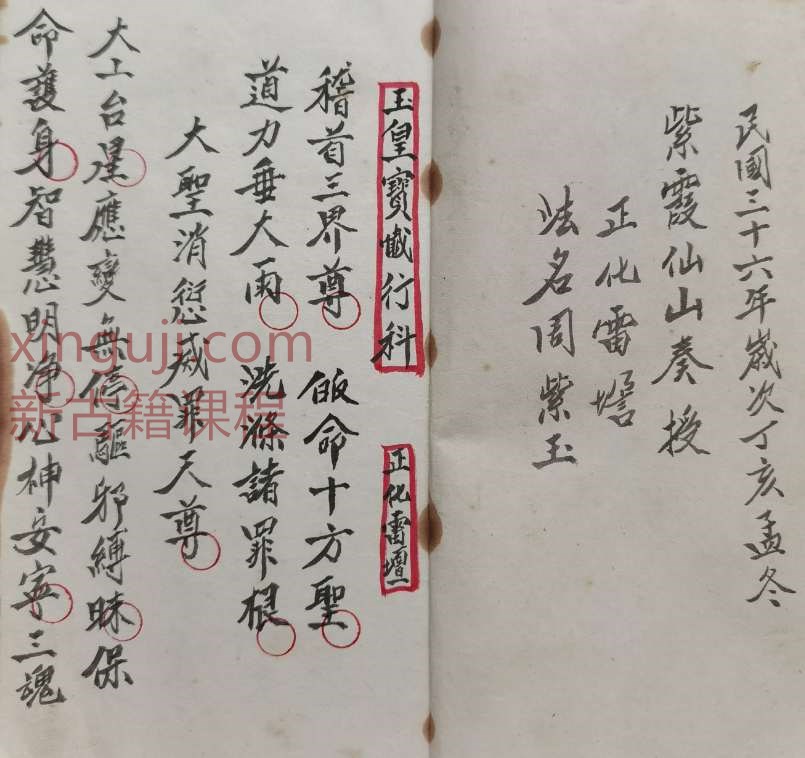 民國三十六年歲次丁亥孟冬
紫霞仙山奏授
正化雷壇
法名周紫玉
玉皇寶懺行科 正化雷壇
稽首三界尊 皈命十方聖
道力垂大雨 洗滌諸罪根
大聖消愆滅罪天尊
大上台星應變無停驅邪縛昧保
命護身智慧明净心神安寧三魂
xinguji.com
新古籍课程